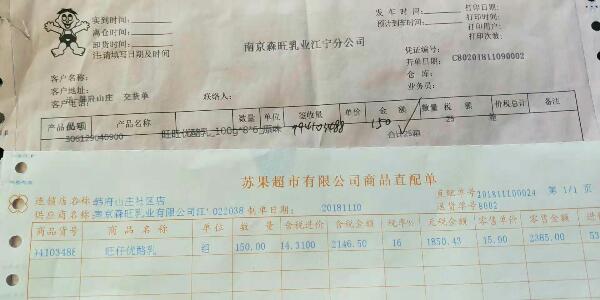 实到时间:
离仓时间:
卸货时间:
注:请填写日期及时间
发车时间:
预计到车时间:
打印日期:
打印时间:
打印用户:
打印次数:
南京森旺乳业江宁分公司
凭证编号:
开单日期: CB0201811090002
仓库:
业务员:
客户名称:
客户地址: 府山庄 交款单
客户电话:
联络人:
产品 产品名称 数量 单位 签收量 单价 金额 数量 税额 价税总计 备注
旺旺优酪乳 100g*8*6原味 150 合计25箱 25
苏果超市有限公司商品直配单
直配单号201811100024 第 1/1 页
连锁店名称 韩府山庄社区店
送货单号8002
供应商名称 南京森旺乳业有限公司江 022038 制单日期: 20181110
商品货号 商品名称 单位 数量 含税进价 含税金额 税率% 无税金额 零售单价 零售金额
旺仔优酪乳 组 150.00 14.3100 2146.50 16 1850.43 15.90 2385.00 53